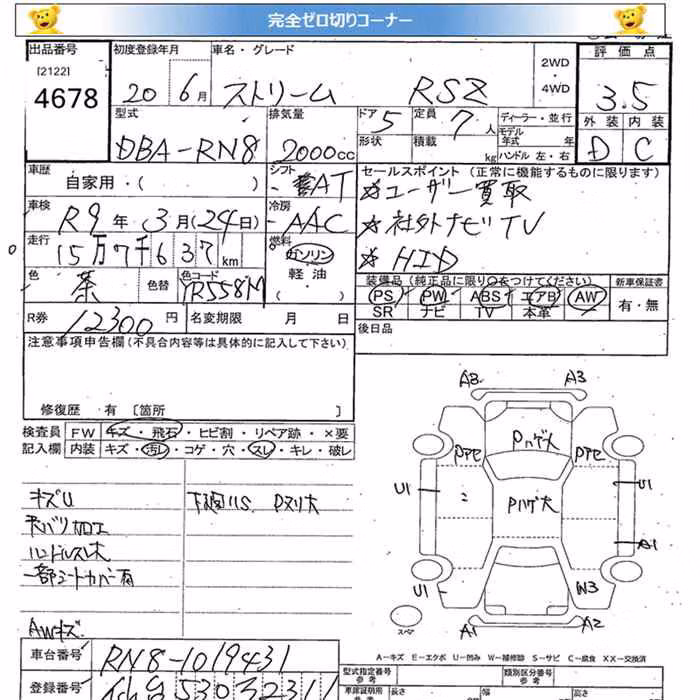 完全ゼロ切りコーナー
出品番号 初度登録年月 車名・グレード 2WD ・ 4WD 評価点
[2122]
4678 20 6月 ストリーム RSZ 3.5
型式 排気量 ドア 5 定員 7人 ディーラー・並行 外装 内装
DBA-RN8 2000cc 形状 積載 kg モデル年式 年 ハンドル 左・右 D C
車歴 シフト セールスポイント(正常に機能するものに限ります)
自家用・( ) AT ☆ユーザー買取
車検 冷房
R9年 3月(24日) AAC ☆社外ナビTV
走行 燃料
15万7千637km ガソリン ☆HID
色 色替 色コード 軽油 装備品(純正品に限り○をつけてください) 新車保証書
茶 YR558M ( ) PS PW ABS エアB AW 有・無
SR ナビ TV 本革
R券 12300円 名変期限 月 日 後日品
注意事項申告欄(不具合内容等は具体的に記入して下さい)
修復歴・有 〔箇所 〕
検査員 FW キズ・飛石・ヒビ割・リペア跡・×要
記入欄 内装 キズ・汚レ・コゲ・穴・スレ・キレ・破レ
A3 A3
Pハゲ大
Pアセ Pアセ
U1 Pハゲ大 U1
A1
U1 W3
スペア A1 A2
キズU
天バリ加工
ハンドルスレ大
一部シートカバー有
AWキズ
A-キズ E-エクボ U-凹み W-補修跡 S-サビ C-腐食 XX-交換済
車台番号 RN8-1019431 型式指定番号 参考 類別区分番号 参考
登録番号 仙台530 車庫証明用 参考 長さ 幅 高さ